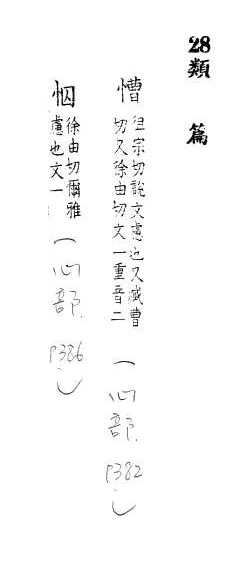 28類 篇
慒
徂宗切說文慮也又臧曹
切又徐由切文一重音二
（心部 P382）
怞
徐由切爾雅
慮也文一
（心部 P386）